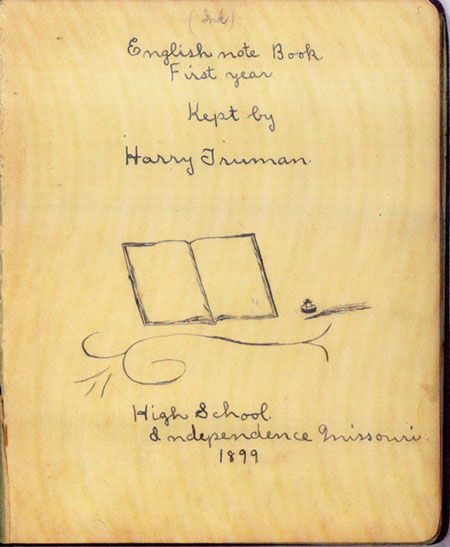 (Ink)
English note Book
First year
Kept by
Harry Truman.
High School.
Independence Missouri.
1899